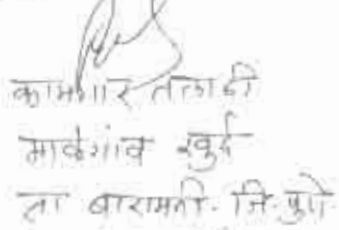 कामगार तलाठी
माळेगांव खुर्द
ता बारामती. जि. पुणे